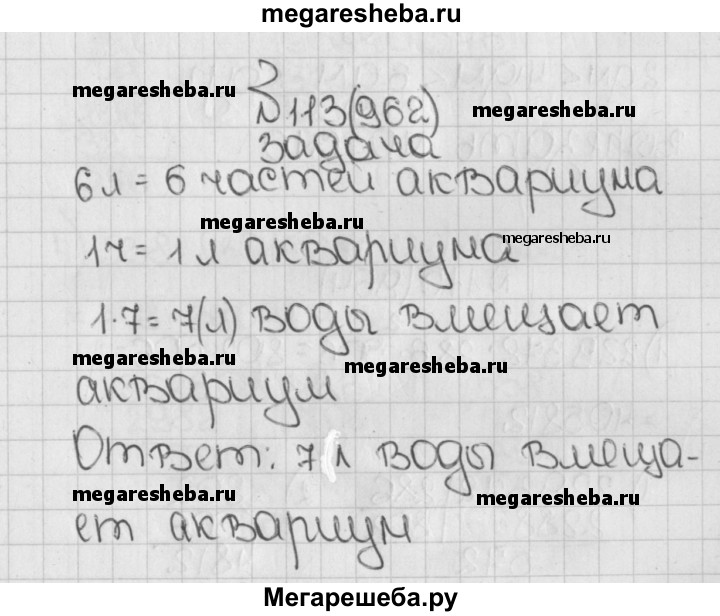 megaresheba.ru
megaresheba.ru
№113(962)
megaresheba.ru
задача
6л = 6 частей аквариума
megaresheba.ru
1ч = 1 л аквариума
megaresheba.ru
1·7 = 7(л) воды вмещает
megaresheba.ru
megaresheba.ru
аквариум
Ответ: 7 л воды вмеща-
megaresheba.ru
megaresheba.ru
ет аквариум
Мегарешеба.ру